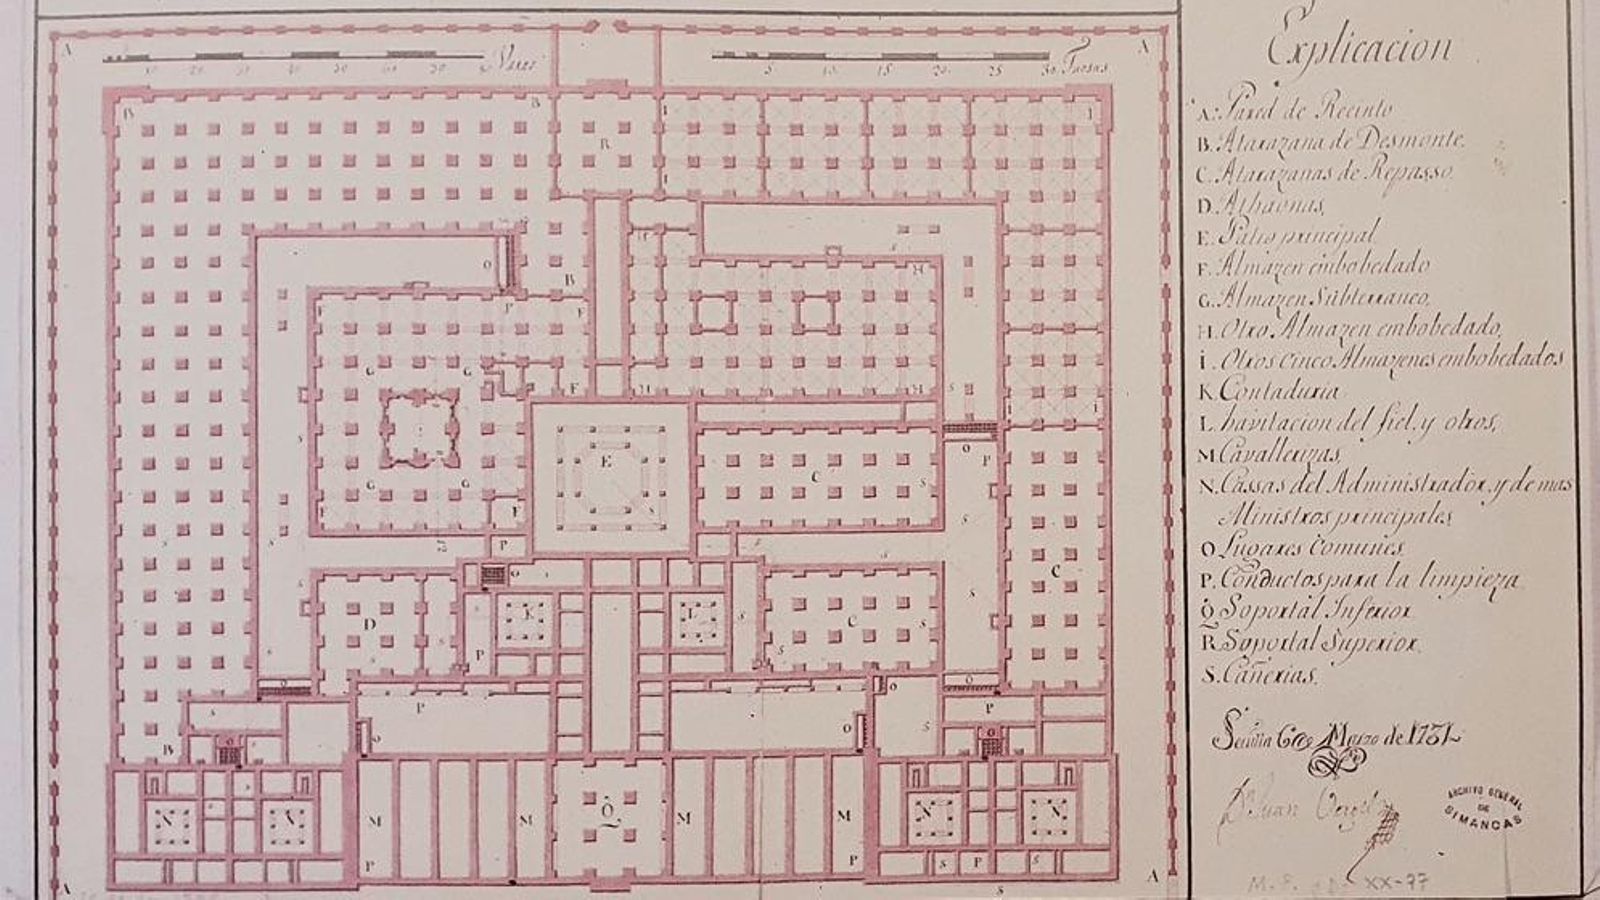 Varas
10 20 30 40 50 60 70
Tuesas
5 10 15 20 25 30
Explicacion
A. Pared de Recinto
B. Atarazana de Desmonte.
C. Atarazanas de Repasso.
D. Athaonas,
E. Patio principal
F. Almazen embobedado
G. Almazen Subterraneo,
H. Otro Almazen embobedado,
I. Otros cinco Almazenes embobedados
K. Contaduria
L. havitacion del fiel, y otros,
M. Cavallerizas,
N. Cassas del Administrador, y demas
Ministros principales,
O Lugares Comunes,
P. Conductos para la limpieza
Q Soportal Inferior
R. Soportal Superior.
S. Cañerias.
Sevilla 6 de Marzo de 1731
Dn. Juan
ARCHIVO GENERAL
DE
SIMANCAS
XX-77